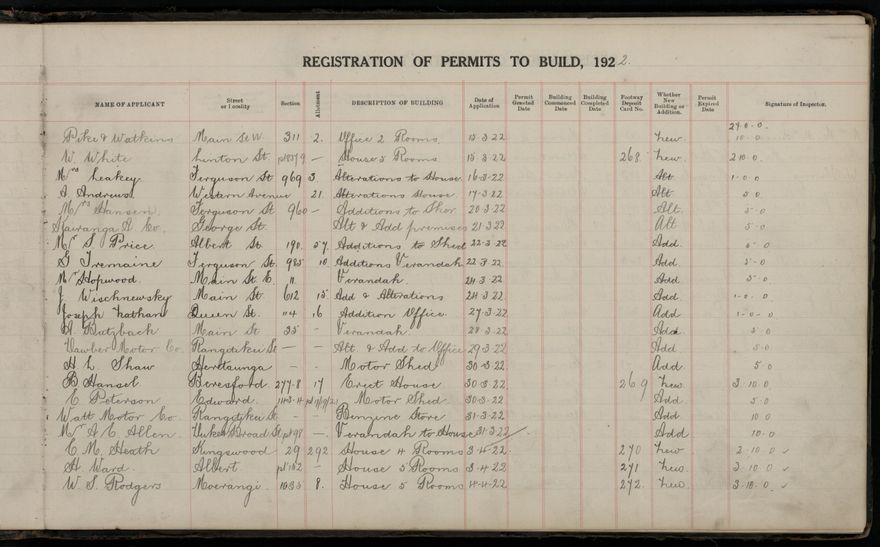 REGISTRATION OF PERMITS TO BUILD, 1922.
NAME OF APPLICANT Street or Locality Section Allotment DESCRIPTION OF BUILDING Date of Application Permit Granted Date Building Commenced Date Building Completed Date Footway Deposit Card No. Whether New Building or Addition. Permit Expired Date Signature of Inspector.
29.0.0
Pike & Watkins Main St W. 311 2. Office 2 Rooms. 15.3.22 New 10.0
W. White Linton St. — House 5 Rooms 15.3.22 268 New 2.10.0
Mrs Leakey Ferguson St 969 3. Alterations to House 16.3.22 Alt 1.0.0
A Andrews Western Avenue 21. Alterations House 17.3.22 Alt 5.0
Mrs Hansen Ferguson St 960 — Additions to Shop 20.3.22 Alt. 5.0
Kairanga A Co. George St. Alt & Add premises 21.3.22 Alt 5.0
Mr S Price Albert St. 190. 57. Additions to Shed 22.3.22 Add. 5.0
G Tremaine Ferguson St. 985 10. Additions Verandah 22.3.22 Add. 5.0
Mr Hopwood. Main St. E. 11. Verandah. 24.3.22 Add 5.0
J Wischnewsky Main St. 612 15 Add & Alterations 24.3.22 Add. 1.0.0
Joseph Nathan Queen St. 114 16 Addition Office. 27.3.22 Add 1.0.0
A Butzback Main St. 35 — Verandah. 28.3.22 Add 5.0
Vawber Motor Co. Rangitikei St — — Alt. & Add to Office 29.3.22 Add 5.0
H. L. Shaw Heretaunga — — Motor Shed 30.3.22 Add 5.0
B Hansel Beresford 277.8 17 Erect House 30.3.22 269 New 3.10.0
E Peterson Edward. Motor Shed. 30.3.22 Add. 5.0
Watt Motor Co. Rangitikei St. — Benzine Store 31.3.22 Add. 10.0
Mr A E Allen. Broad St. pt 98 —. Verandah to House 31.3.22 Add 10.0
E M. Heath Kingswood 29 292 House 4 Rooms 3.4.22. 270 New 2.10.0 ✓
H Ward. Albert — House 5 Rooms 3.4.22 271 New. 3.10.0 ✓
W. S. Rodgers Moerangi 1033 8. House 5 Rooms 4.4.22 272. New. 3.10.0 ✓